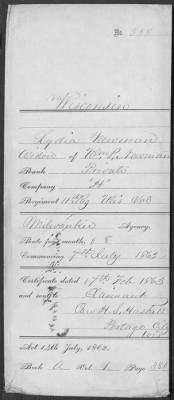 No. 388
Wisconsin
Lydia Newman
Widow of Wm P. Newman
Rank Private
Company "H"
Regiment 11th Reg Wis Vols
Milwaukee Agency.
Rate per month, $8
Commencing 7th July 1862
Certificate dated 17th Feb 1863
and sent to Claimant
Care H. S. Haskell
Portage City
Wis
Act 14th July, 1862.
Book A Vol. 1 Page 388